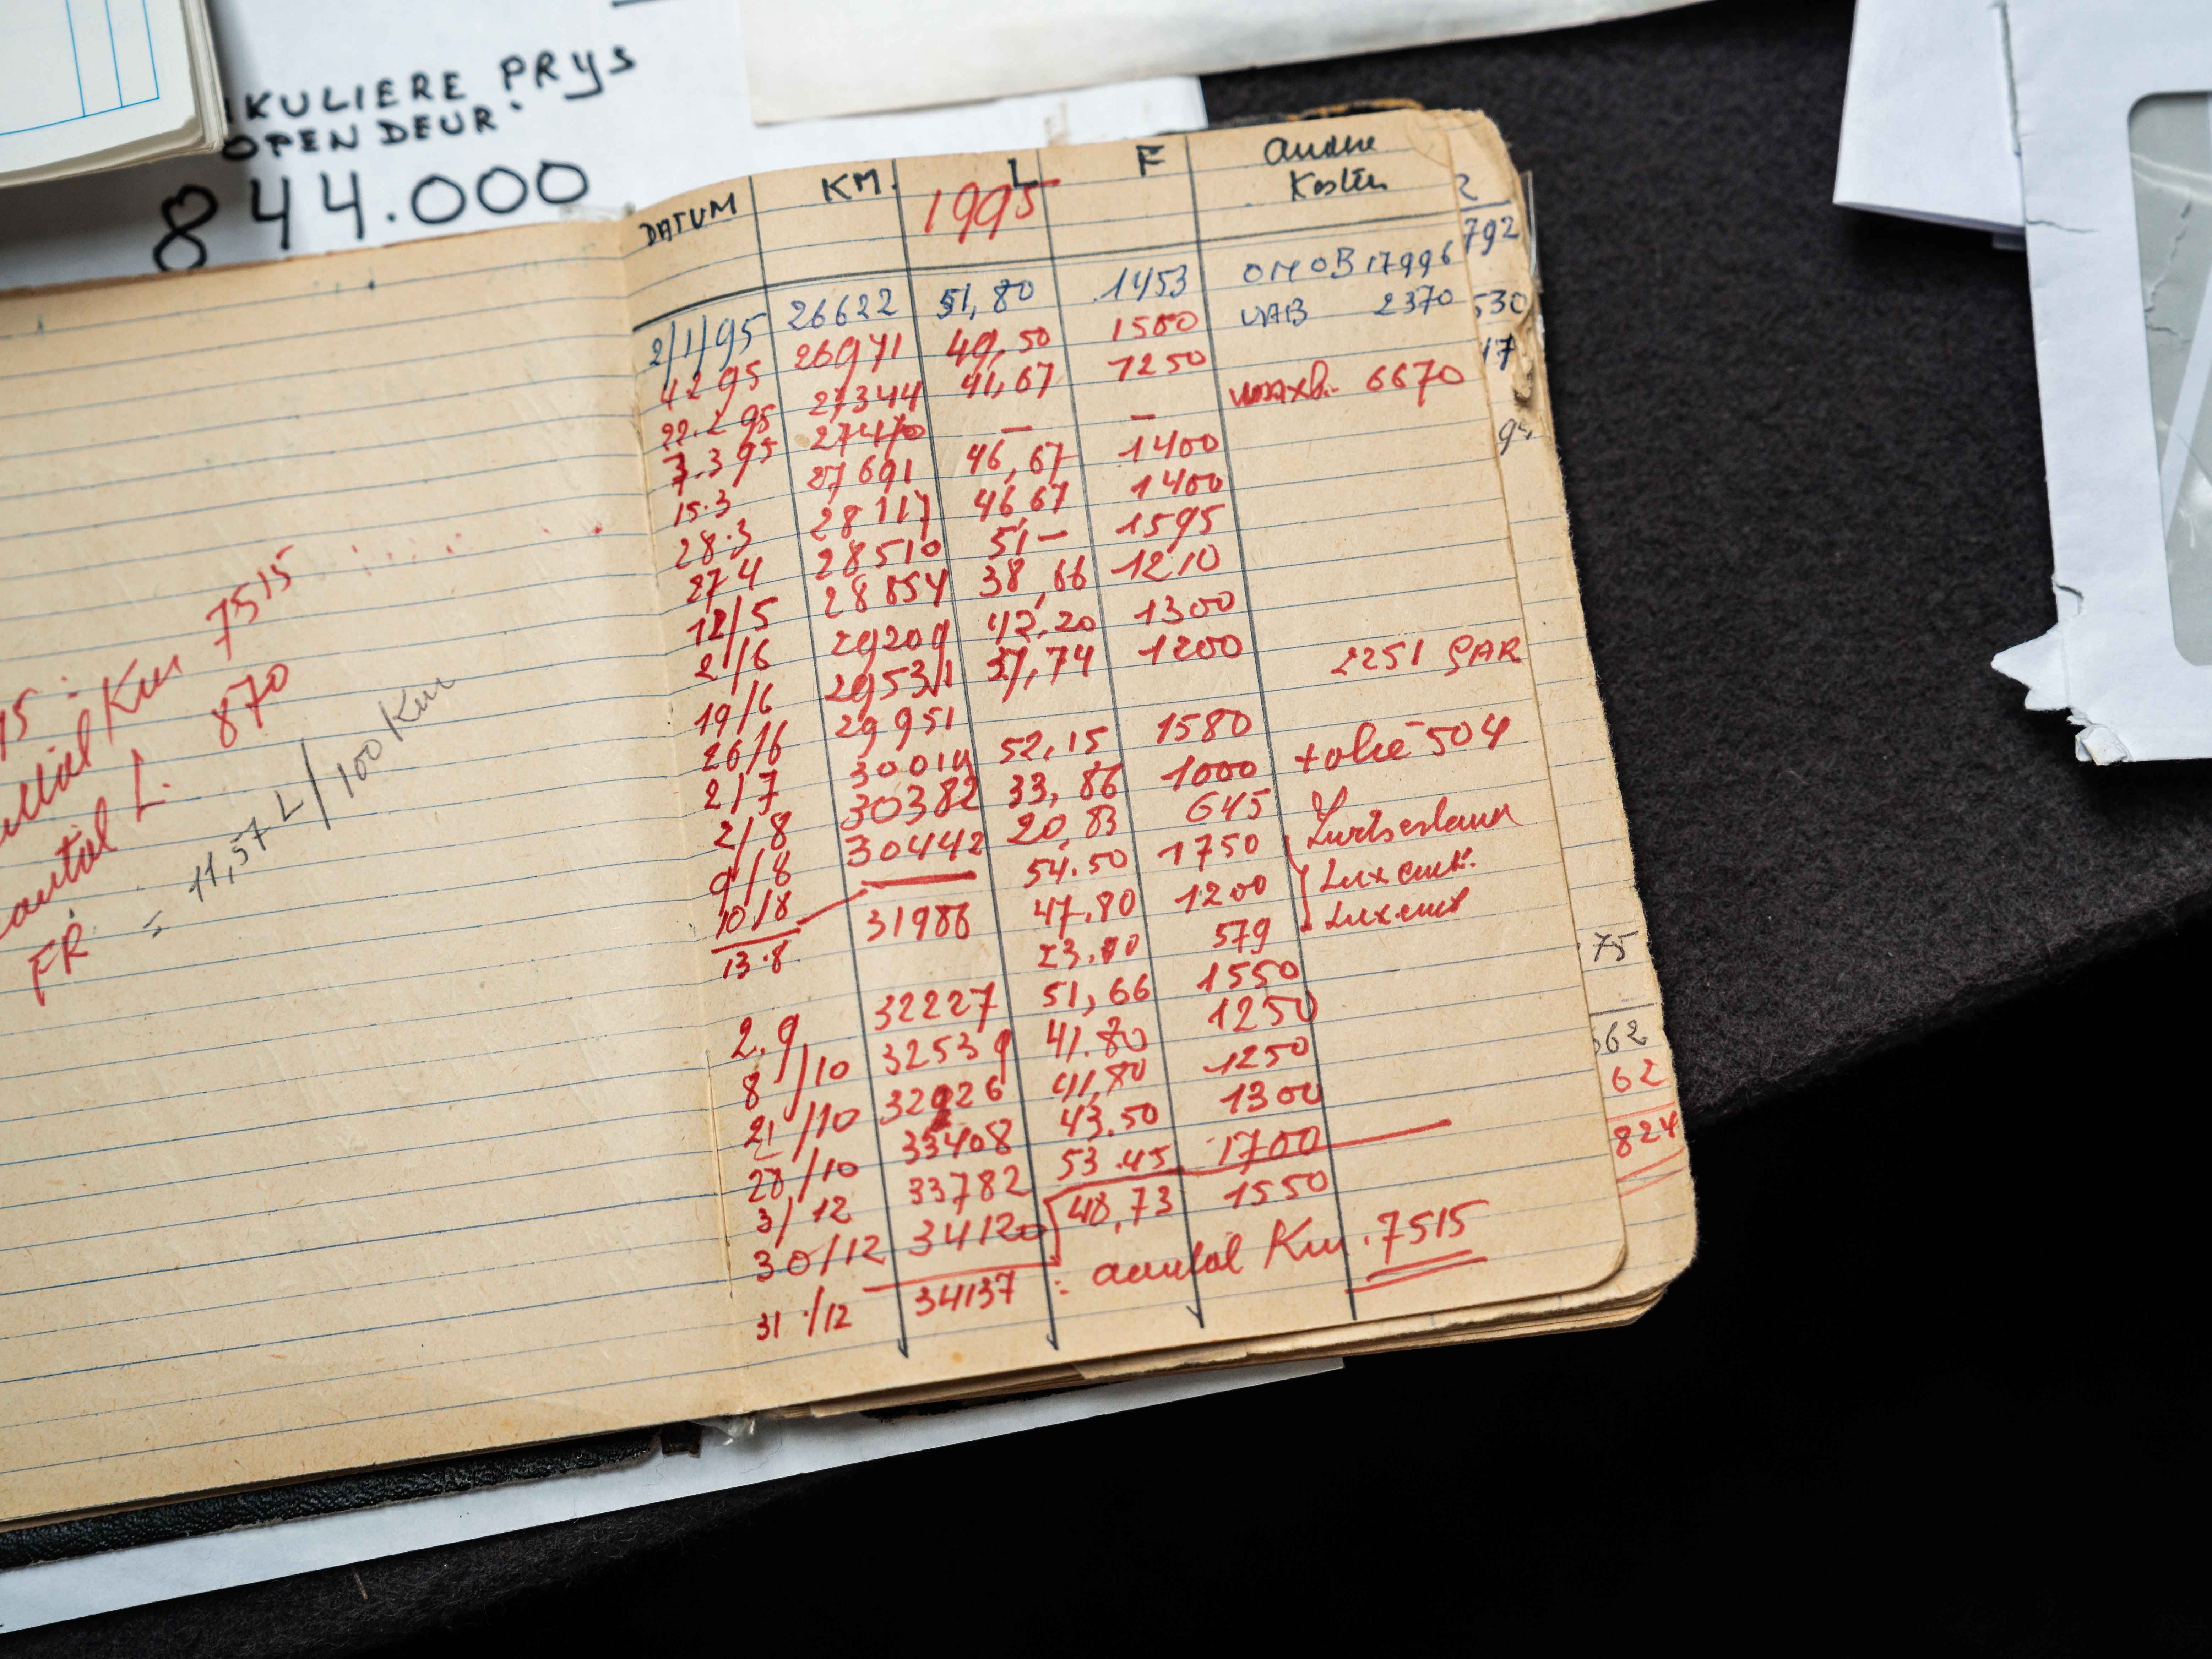 KULIERE PRYS
OPENDEUR
844.000
DATUM KM. L F andere
1995 Kosten
2/1/95 26622 51,80 1453 OMOB 17996
4 2 95 26971 49,50 1500 VAB 2370
22.2 95 27344 41,67 1250
7.3 95 27470 — — 6670
15.3 27691 46,67 1400
28.3 28117 46 67 1400
27 4 28510 51- 1595
12/5 28854 38,66 1210
2/6 29209 42.20 1300
19/6 29531 37,74 1200
26/6 29951 2251 GAR
2/7 30014 52,15 1580
2/8 30382 33,86 1000 + olie 504
9/8 30442 20,83 645
10/8 — 54.50 1750 Zwitserland
13.8 31986 47.80 1200
23.70 579
2.9 32227 51,66 1550
8/10 32539 41.80 1250
21/10 32926 41,80 1250
28/10 33408 43.50 1300
3/12 33782 53.45 1700
30/12 34120 48,73 1550
31/12 34137 : aantal Km. 7515
95 :
aantal Km 7515
aantal L. 870
FR. = 11,57 L/100 Km
792
530
17
75
662
62
824